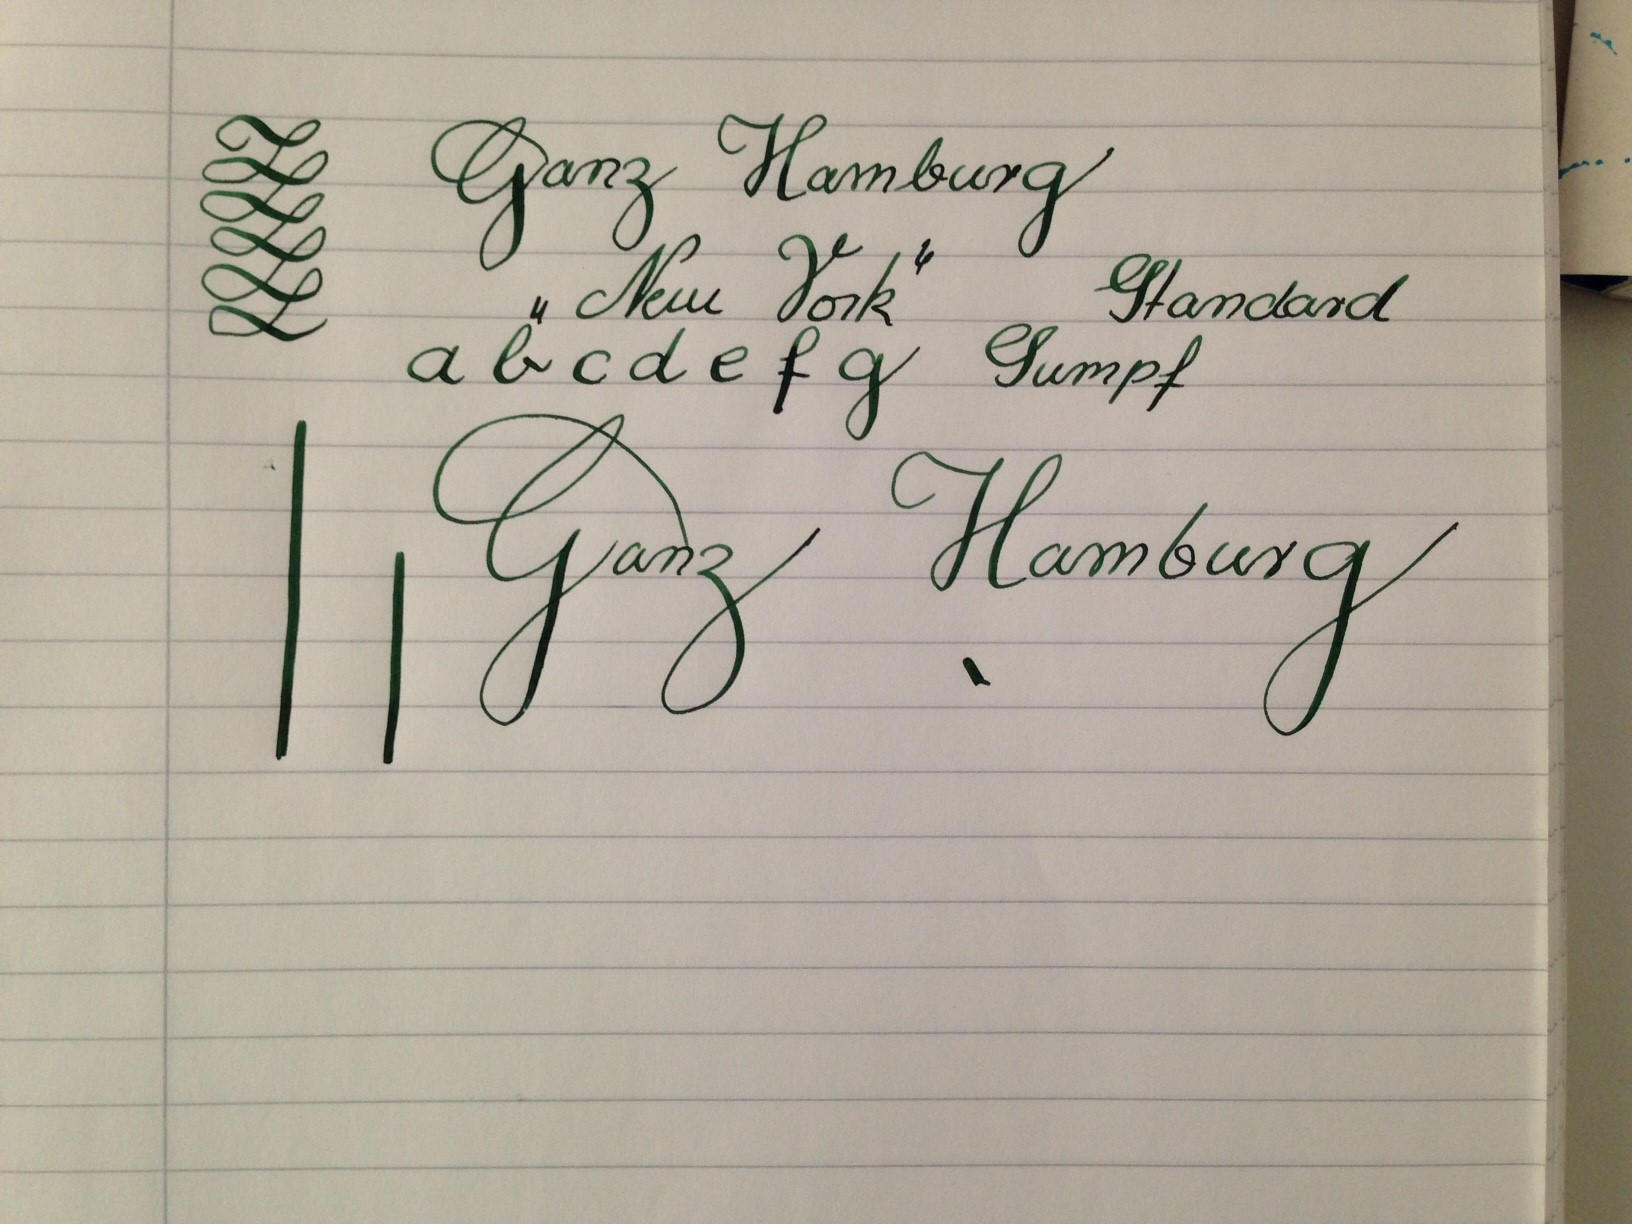 Ganz Hamburg
„New York“ Standard
a b c d e f g Sumpf
Ganz Hamburg